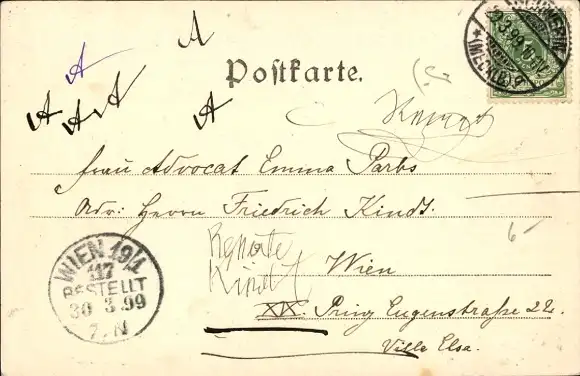 A
A
A A A
A
Postkarte.
SCHWERIN
29.3.99.10-11V.
*(MECKLB)*
Frau Advocat Emma Parbs
Adr: Herrn Friedrich Kindt.
Renate
Kindt
6-
Wien
XIX. Prinz Eugenstraße 22.
Villa Elsa.
WIEN 19/1
117
BESTELLT
30 3 99
7. N